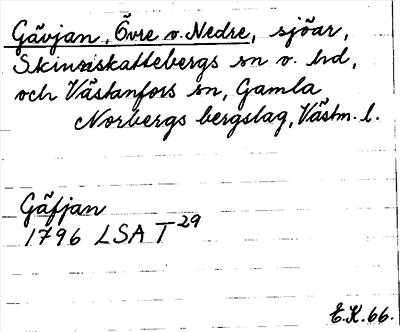 Gävjan, Övre o. Nedre, sjöar,
Skinnskattebergs sn o. hd,
och Västanfors sn, Gamla
Norbergs bergslag, Västm. l.
Gäfjan
1796 LSA T29
E.K.66.